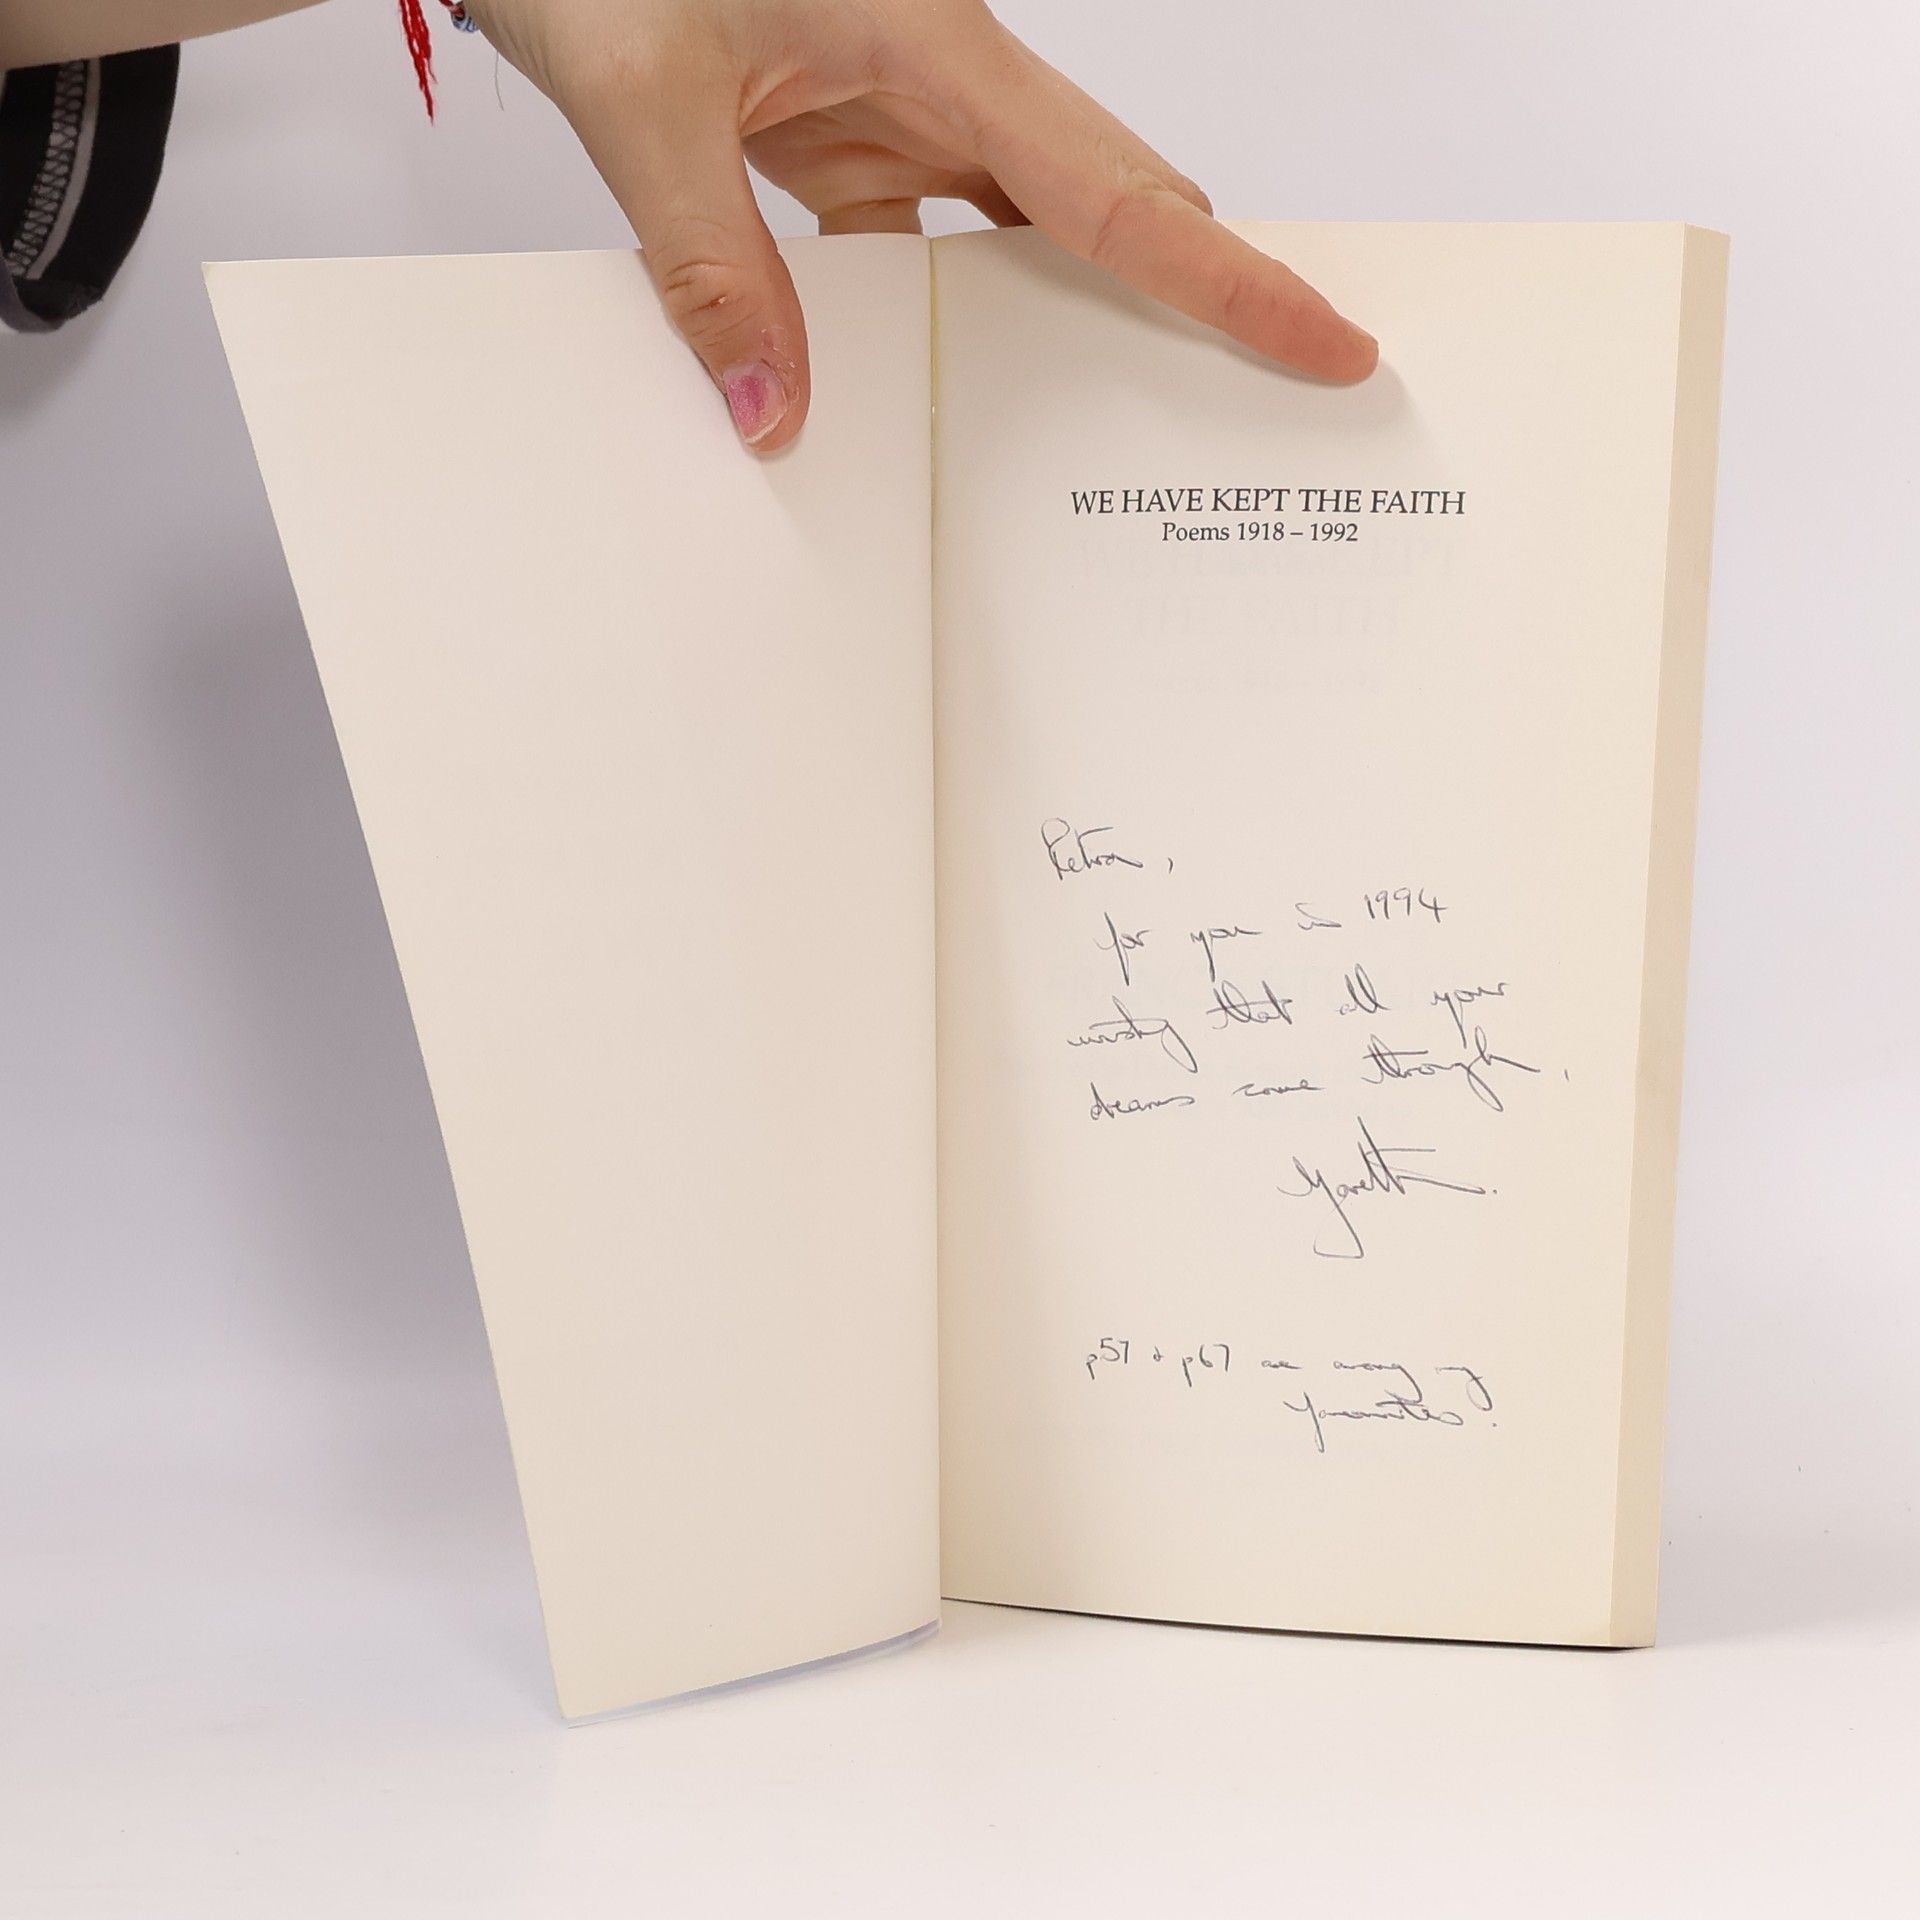 WE HAVE KEPT THE FAITH
Poems 1918 – 1992
Petra,
for you in 1994
wishing that all your
dreams come through,
p57 & p67 are among my
favourites.